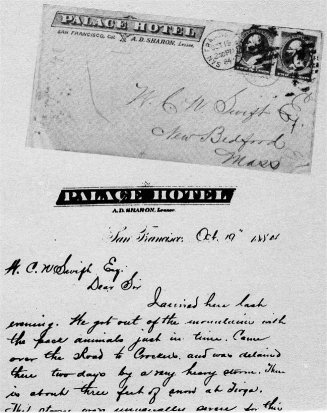 PALACE HOTEL
SAN FRANCISCO, CAL. A.D. SHARON, Lessee.
SAN FRAN
OCT 19
84
W. C. N. Swift Esq.
New Bedford
Mass
PALACE HOTEL
A.D. SHARON, Lessee.
San Francisco, Oct. 19" 1884
W. C. N Swift Esq.
Dear Sir
I arrived here last
evening. We got out of the mountains with
the pack animals just in time. Came
over the Road to Crockers, and was detained
there two days by a very heavy storm. There
is about three feet of snow at Tioga.
This storm was unusually severe for this